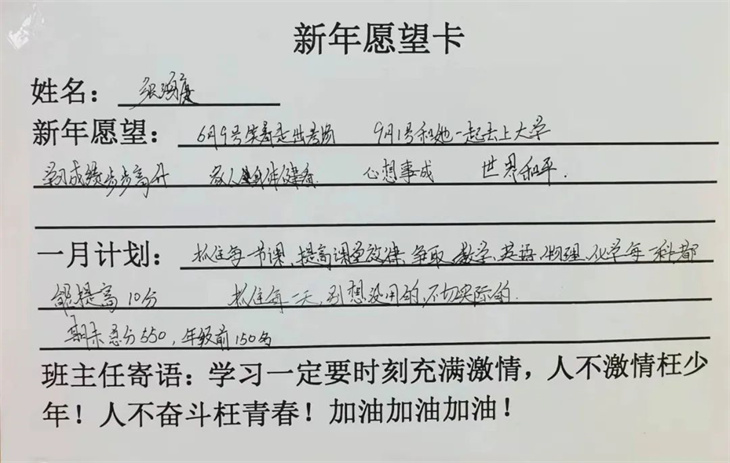 新年愿望卡
姓名：张强
新年愿望：6月9号笑着走出考场 9月1号和她一起去上大学
学习成绩步步高升 家人身体健康 心想事成 世界和平.
一月计划：抓住每一节课,提高课堂效率,争取数学、英语、物理、化学每一科都
能提高10分 抓住每一天,别想没用的,不切实际的.
期末总分550,年级前150名
班主任寄语：学习一定要时刻充满激情，人不激情枉少
年！人不奋斗枉青春！加油加油加油！